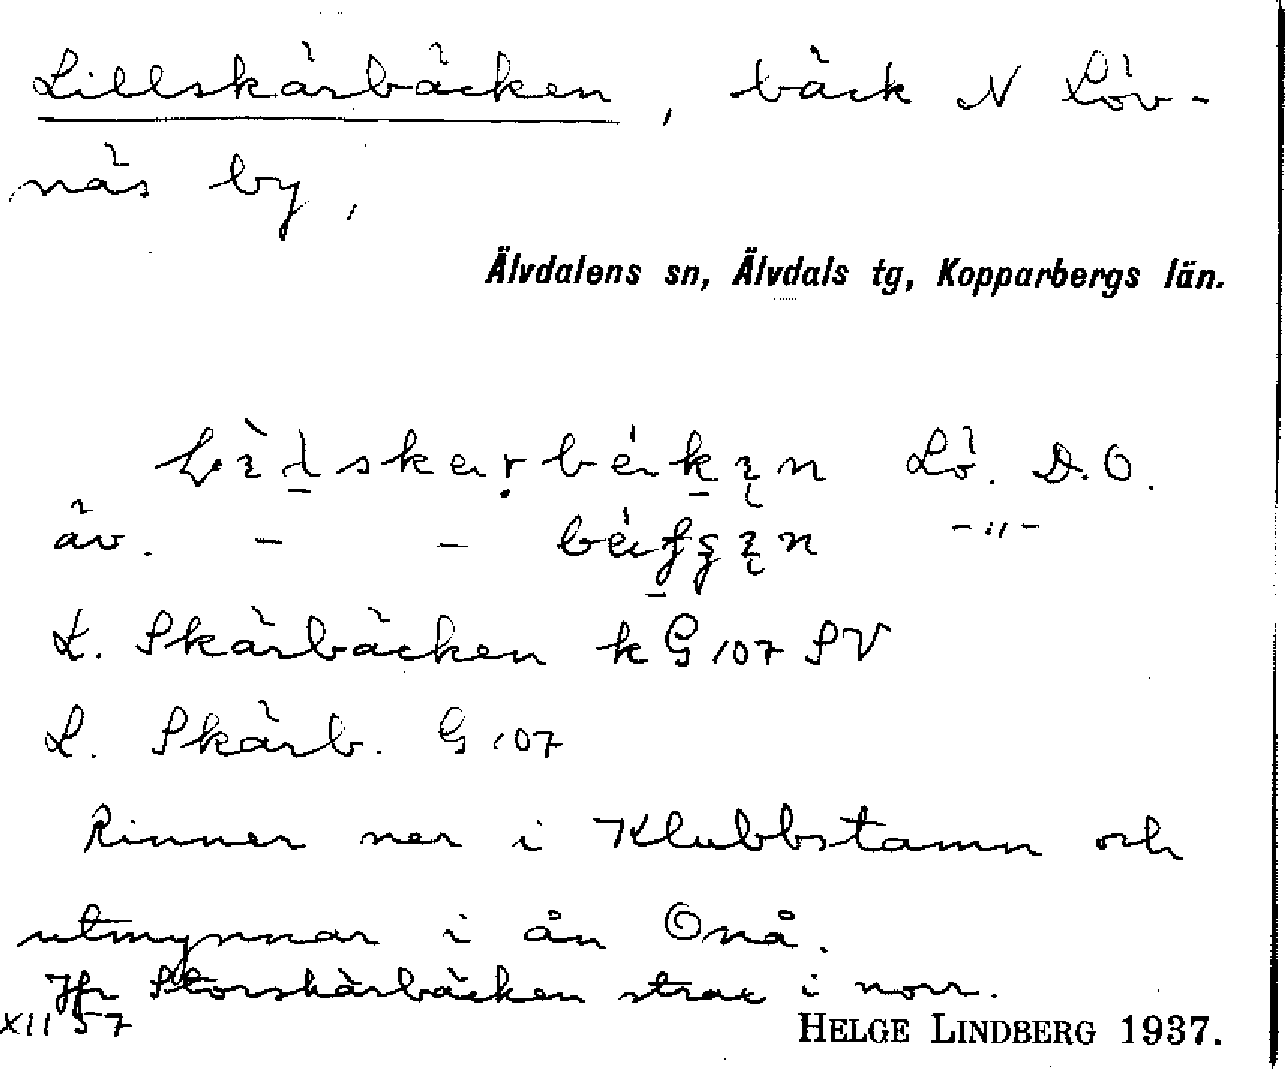 Lillskärbäcken, bäck N Löv-
näs by,
Älvdalens sn, Älvdals tg, Kopparbergs län.
Lö. D.O.
äv. - - -"-
L. Skärbäcken kG 107 SV
L. Skärb. G 107
Rinner ner i Klubbstamn och
utmynnar i ån Onå.
Jfr Storskärbäcken strax i norr.
XII 57
HELGE LINDBERG 1937.